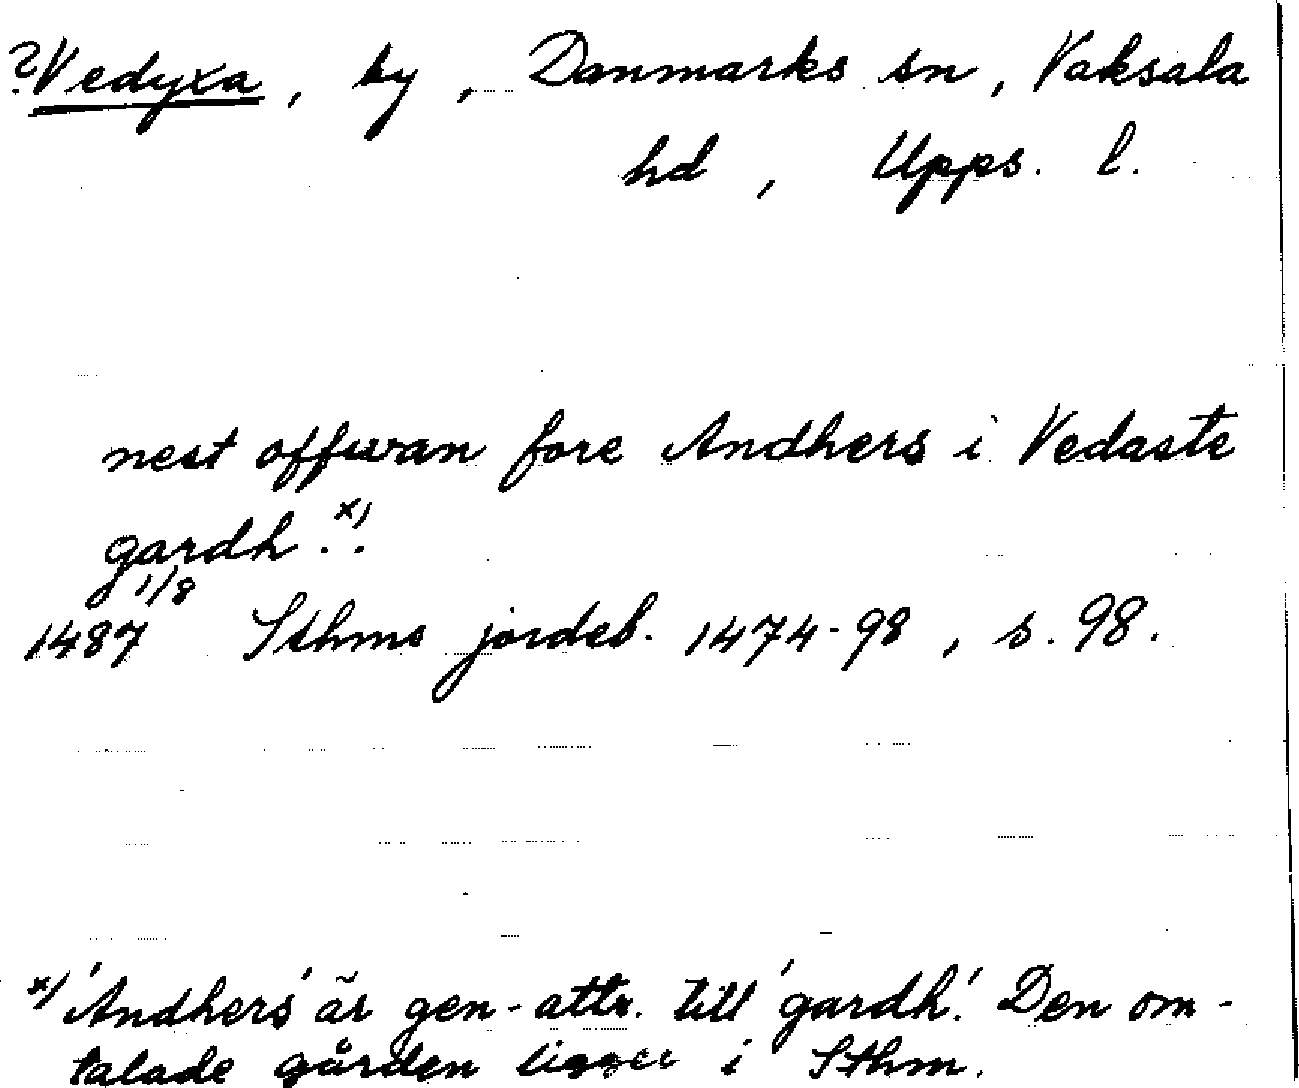 ?Vedyxa, by, Danmarks sn, Vaksala
hd, Upps. l.
nest offwan fore Andhers i Vedaste
gardh.x).
1487 1/8 Sthms jordeb. 1474-98, s. 98.
x) 'Andhers' är gen-attr. till 'gardh'. Den om-
talade gården ligger i Sthm.